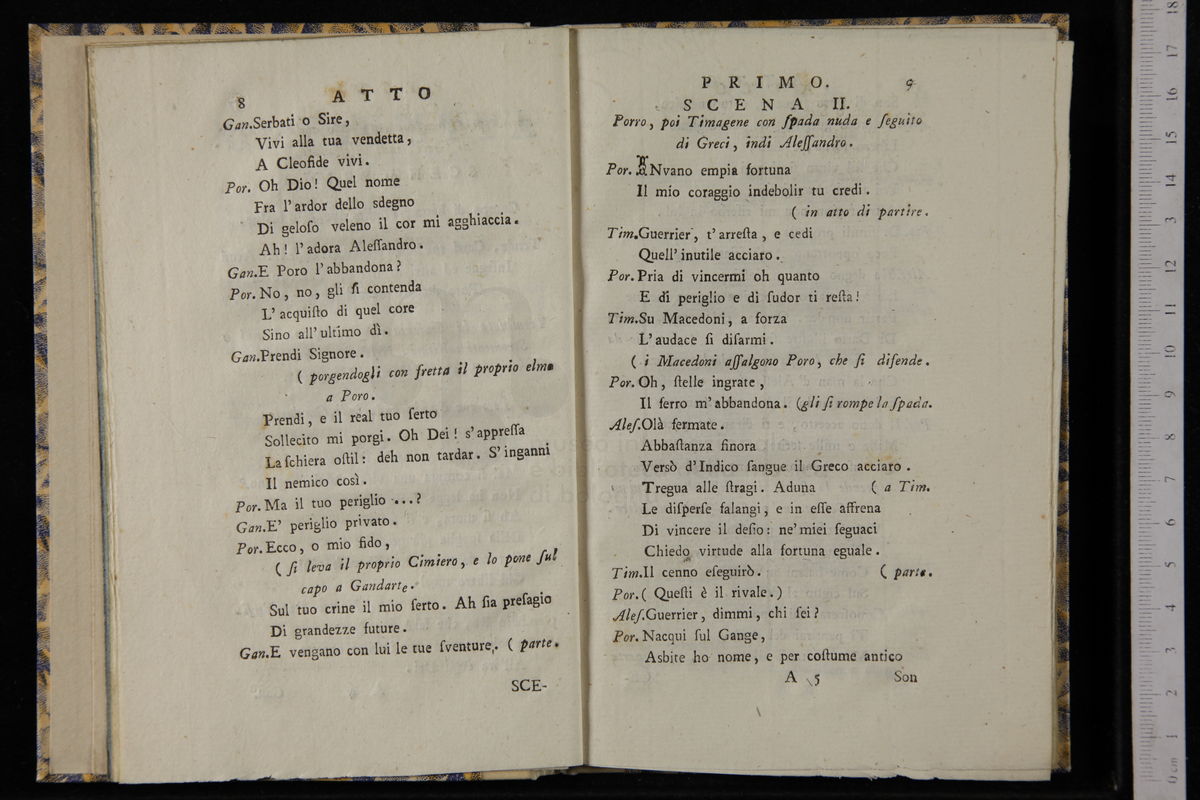 8 ATTO
Gan.Serbati o Sire,
Vivi alla tua vendetta,
A Cleofide vivi.
Por. Oh Dio! Quel nome
Fra l'ardor dello sdegno
Di geloſo veleno il cor mi agghiaccia.
Ah! l'adora Aleſſandro.
Gan.E Poro l'abbandona?
Por. No, no, gli ſi contenda
L'acquiſto di quel core
Sino all'ultimo dì.
Gan.Prendi Signore.
( porgendogli con fretta il proprio elmo
a Poro.
Prendi, e il real tuo ſerto
Sollecito mi porgi. Oh Dei! s'appreſſa
La ſchiera oſtil: deh non tardar. S'inganni
Il nemico così.
Por. Ma il tuo periglio ...?
Gan.E' periglio privato.
Por. Ecco, o mio fido,
( ſi leva il proprio Cimiero, e lo pone ſul
capo a Gandarte.
Sul tuo crine il mio ſerto. Ah ſia preſagio
Di grandezze future.
Gan.E vengano con lui le tue ſventure. ( parte.
SCE-
PRIMO. 9
SCENA II.
Porro, poi Timagene con ſpada nuda e ſeguito
di Greci, indi Aleſſandro.
Por. INvano empia fortuna
Il mio coraggio indebolir tu credi.
( in atto di partire.
Tim.Guerrier, t'arreſta, e cedi
Quell'inutile acciaro.
Por. Pria di vincermi oh quanto
E di periglio e di ſudor ti reſta!
Tim.Su Macedoni, a forza
L'audace ſi diſarmi.
( i Macedoni aſſalgono Poro, che ſi difende.
Por. Oh, ſtelle ingrate,
Il ferro m'abbandona. (gli ſi rompe la ſpada.
Aleſ.Olà fermate.
Abbaſtanza finora
Versò d'Indico ſangue il Greco acciaro.
Tregua alle ſtragi. Aduna ( a Tim.
Le diſperſe falangi, e in eſſe affrena
Di vincere il deſio: ne'miei ſeguaci
Chiedo virtude alla fortuna eguale.
Tim.Il cenno eſeguirò. ( parte.
Por. ( Queſti è il rivale.)
Aleſ.Guerrier, dimmi, chi ſei?
Por. Nacqui ſul Gange,
Asbite ho nome, e per coſtume antico
A 5 Son
18
17
16
15
14
13
12
11
10
9
8
7
6
5
4
3
2
1
0 cm